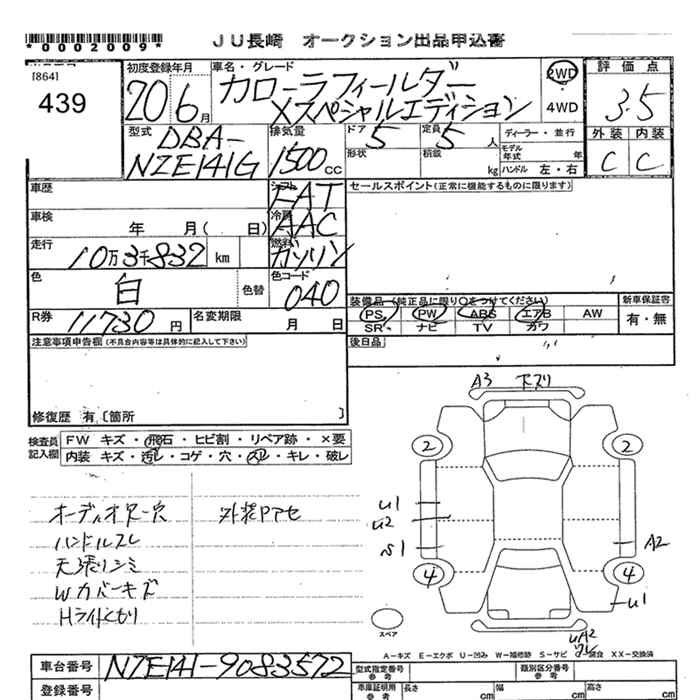 *0002009*
JU長崎 オークション出品申込書
[864]
439
初度登録年月
20 6月
車名・グレード
カローラフィールダー
Xスペシャルエディション
2WD
・
4WD
評価点
3.5
外装 内装
C C
型式
DBA-
NZE141G
排気量
1500cc
ドア 5
定員 5人
形状
積載
kg
ディーラー・並行
モデル年式 年
ハンドル 左・右
車歴
シフト
FAT
セールスポイント(正常に機能するものに限ります)
車検
年 月( 日)
冷房
AAC
走行
10万3千832 km
燃料
ガソリン
色
白
色替
色コード
040
装備品(純正品に限り○をつけてください)
新車保証書
PS PW ABS エアB AW
有・無
SR ナビ TV カワ
R券
11730円
名変期限
月 日
後日品
注意事項申告欄(不具合内容等は具体的に記入して下さい)
修復歴 有〔箇所 〕
検査員記入欄
FW キズ・飛石・ヒビ割・リペア跡・×要
内装 キズ・汚レ・コゲ・穴・スレ・キレ・破レ
オーディオヌケ穴
外装Pアセ
ハンドルスレ
天張りシミ
Wカバーキズ
Hライトくもり
A3 下ズリ
2 2
U1
U2
S1
A2
4 4
U1
UA2
スペア
A-キズ E-エクボ U-凹み W-補修跡 S-サビ C-腐食 XX-交換済
車台番号
NZE141-9083572
登録番号
型式指定番号
類別区分番号
車庫証明用参考
長さ cm
幅 cm
高さ cm